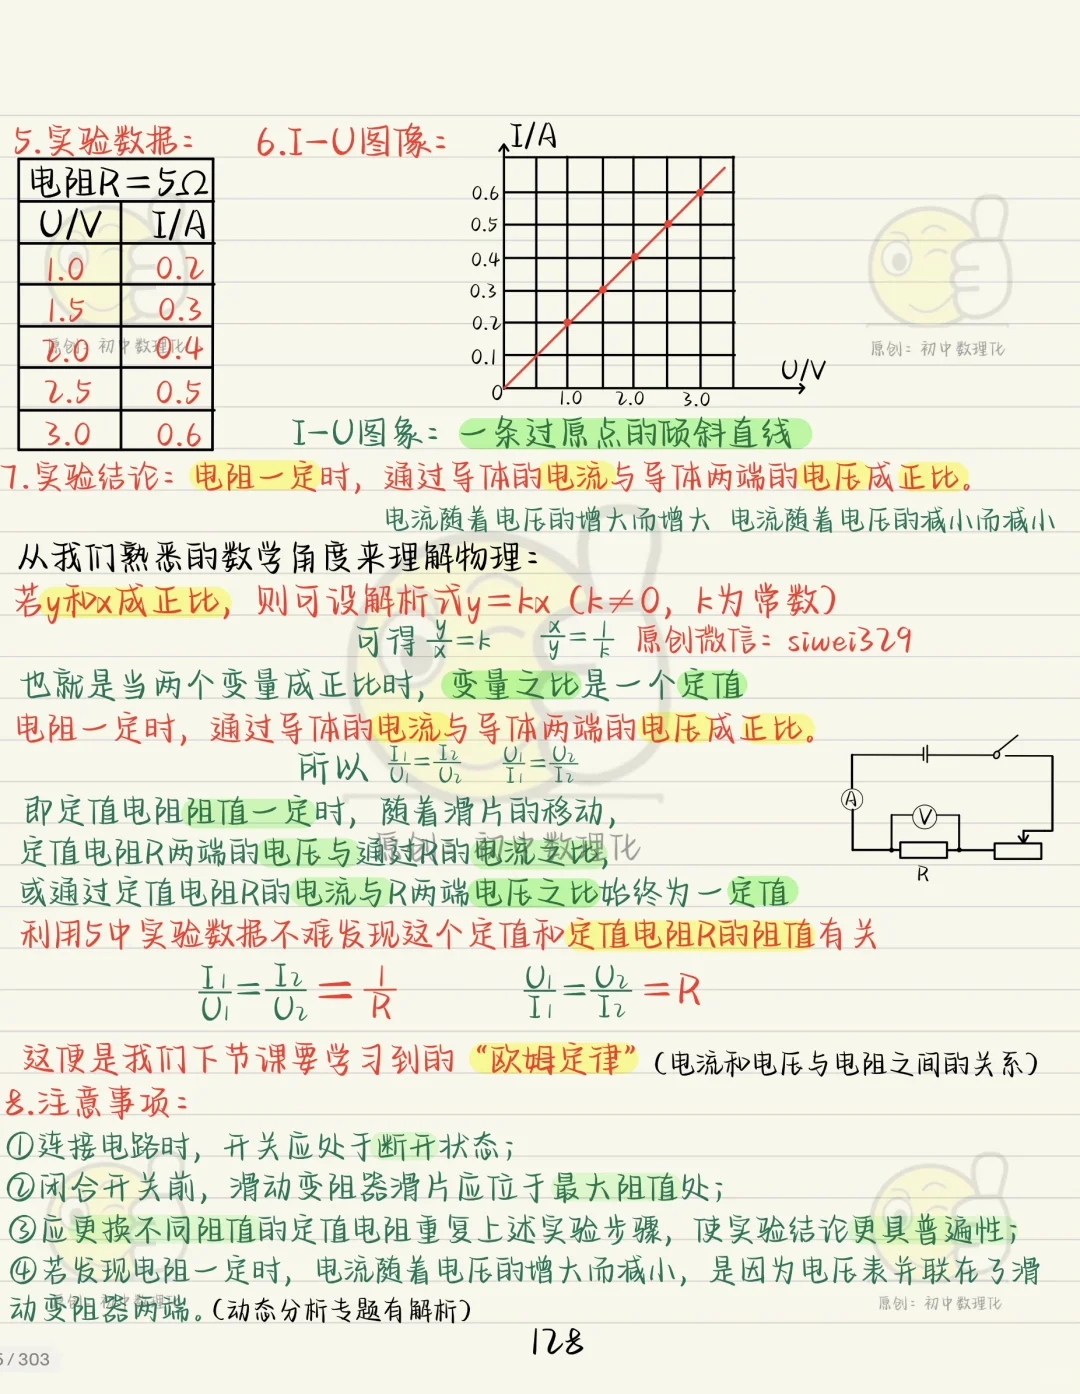 5.实验数据:
电阻R=5Ω
U/V I/A
1.0 0.2
1.5 0.3
2.0 0.4
2.5 0.5
3.0 0.6
6.I-U图像:
I/A
0.6
0.5
0.4
0.3
0.2
0.1
0 1.0 2.0 3.0
U/V
原创:初中数理化
原创:初中数理化
I-U图象:一条过原点的倾斜直线
7.实验结论:电阻一定时,通过导体的电流与导体两端的电压成正比。
电流随着电压的增大而增大 电流随着电压的减小而减小
从我们熟悉的数学角度来理解物理:
若y和x成正比,则可设解析式y=kx(k≠0,k为常数)
可得 y/x=k x/y=1/k 原创微信:siwei329
也就是当两个变量成正比时,变量之比是一个定值
电阻一定时,通过导体的电流与导体两端的电压成正比。
所以 I₁/U₁=I₂/U₂ U₁/I₁=U₂/I₂
即定值电阻阻值一定时,随着滑片的移动,
定值电阻R两端的电压与通过R的电流之比,
原创:初中数理化
或通过定值电阻R的电流与R两端电压之比始终为一定值
A
V
R
利用5中实验数据不难发现这个定值和定值电阻R的阻值有关
I₁/U₁=I₂/U₂=1/R U₁/I₁=U₂/I₂=R
这便是我们下节课要学习到的“欧姆定律”(电流和电压与电阻之间的关系)
8.注意事项:
①连接电路时,开关应处于断开状态;
②闭合开关前,滑动变阻器滑片应位于最大阻值处;
③应更换不同阻值的定值电阻重复上述实验步骤,使实验结论更具普遍性;
④若发现电阻一定时,电流随着电压的增大而减小,是因为电压表并联在了滑
动变阻器两端。(动态分析专题有解析)
原创:初中数理化
原创:初中数理化
128
5/303